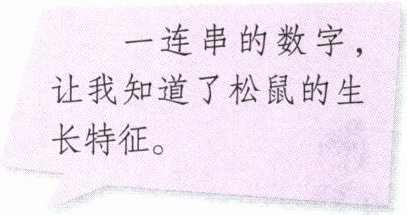 一连串的数字，
让我知道了松鼠的生
长特征。